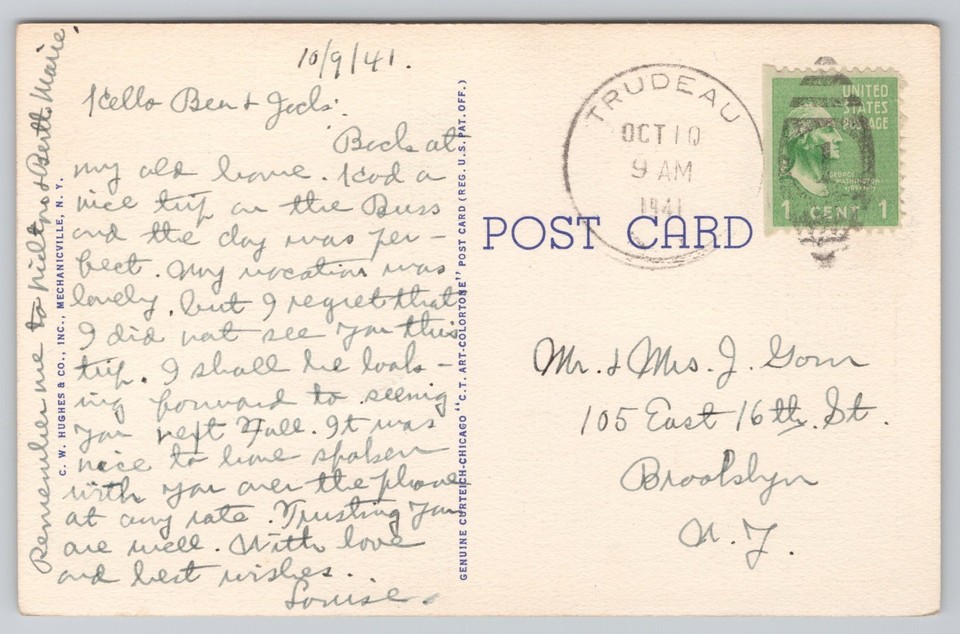 10/9/41.
Hello Ben & Jack:
Back at
my old home. Had a
nice trip on the Buss
and the day was per-
fect. My vacation was
lovely, but I regret that
I did not see you this
trip. I shall be look-
ing forward to seeing
you next Fall. It was
nice to have spoken
with you over the phone
at any rate. Trusting you
are well. With love
and best wishes..
Louise.
Remember me to Milton & Marie.
C. W. HUGHES & CO., INC., MECHANICVILLE, N. Y.
GENUINE CURTEICH-CHICAGO "C.T. ART-COLORTONE" POST CARD (REG. U.S. PAT. OFF.)
POST CARD
TRUDEAU
OCT 10
9 AM
1941
UNITED
STATES
POSTAGE
GEORGE
WASHINGTON
1 CENT 1
Mr. & Mrs. J.
105 East 16th. St.
Brooklyn
N. Y.